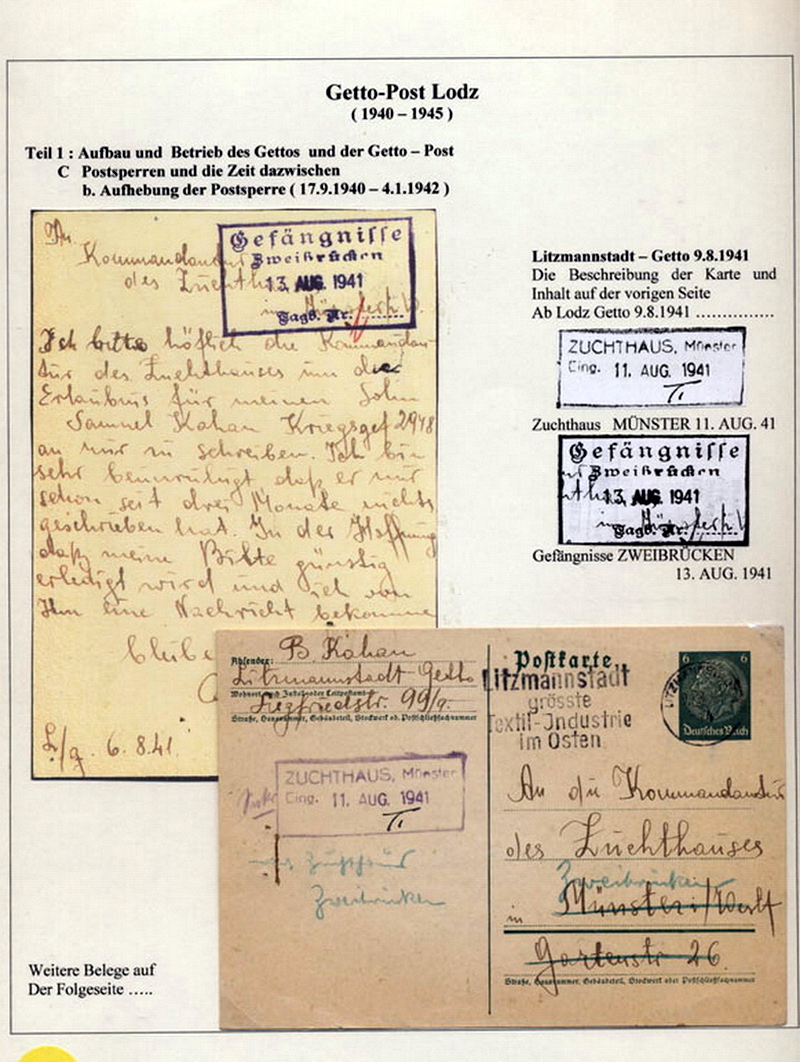 Getto-Post Lodz
( 1940 – 1945 )
Teil 1 : Aufbau und Betrieb des Gettos und der Getto – Post
C Postsperren und die Zeit dazwischen
b. Aufhebung der Postsperre ( 17.9.1940 – 4.1.1942 )
An
Kommandantur
des Zuchth
Gefängnisse
Zweibrücken
13. AUG. 1941
Tagb. Nr.
Ich bitte höflich die Kommandan-
tur des Zuchthauses um die
Erlaubnis für meinen Sohn
Samuel Kahan Kriegsgef 2948
an mir zu schreiben. Ich bin
sehr beunruhigt daß er mir
schon seit drei Monate nichts
geschrieben hat. In der Hoffnung
daß meine Bitte günstig
erledigt wird und ich von
Ihm eine Nachricht bekomme
bleibe
L/g. 6.8.41.
Litzmannstadt – Getto 9.8.1941
Die Beschreibung der Karte und
Inhalt auf der vorigen Seite
Ab Lodz Getto 9.8.1941 ................
ZUCHTHAUS, Münster
Eing. 11. AUG. 1941
Zuchthaus MÜNSTER 11. AUG. 41
Gefängnisse
Zweibrücken
13. AUG. 1941
Tagb. Nr.
Gefängnisse ZWEIBRÜCKEN
13. AUG. 1941
Absender: B. Kahan
Litzmannstadt-Getto
Wohnort, auch Zustell- oder Leitpostamt
Siegfriedstr. 99/9.
Straße, Hausnummer, Gebäudeteil, Stockwerk od. Postschließfachnummer
ZUCHTHAUS, Münster
Eing. 11. AUG. 1941
Zuchthaus
Zweibrücken
Postkarte
Litzmannstadt
grösste
Textil-Industrie
im Osten
6 6
Deutsches Reich
An die Kommandantur
des Zuchthauses
Zweibrücken
in Münster i/Westf
Gartenstr 26.
Straße, Hausnummer, Gebäudeteil, Stockwerk oder Postschließfachnummer
Weitere Belege auf
Der Folgeseite …..